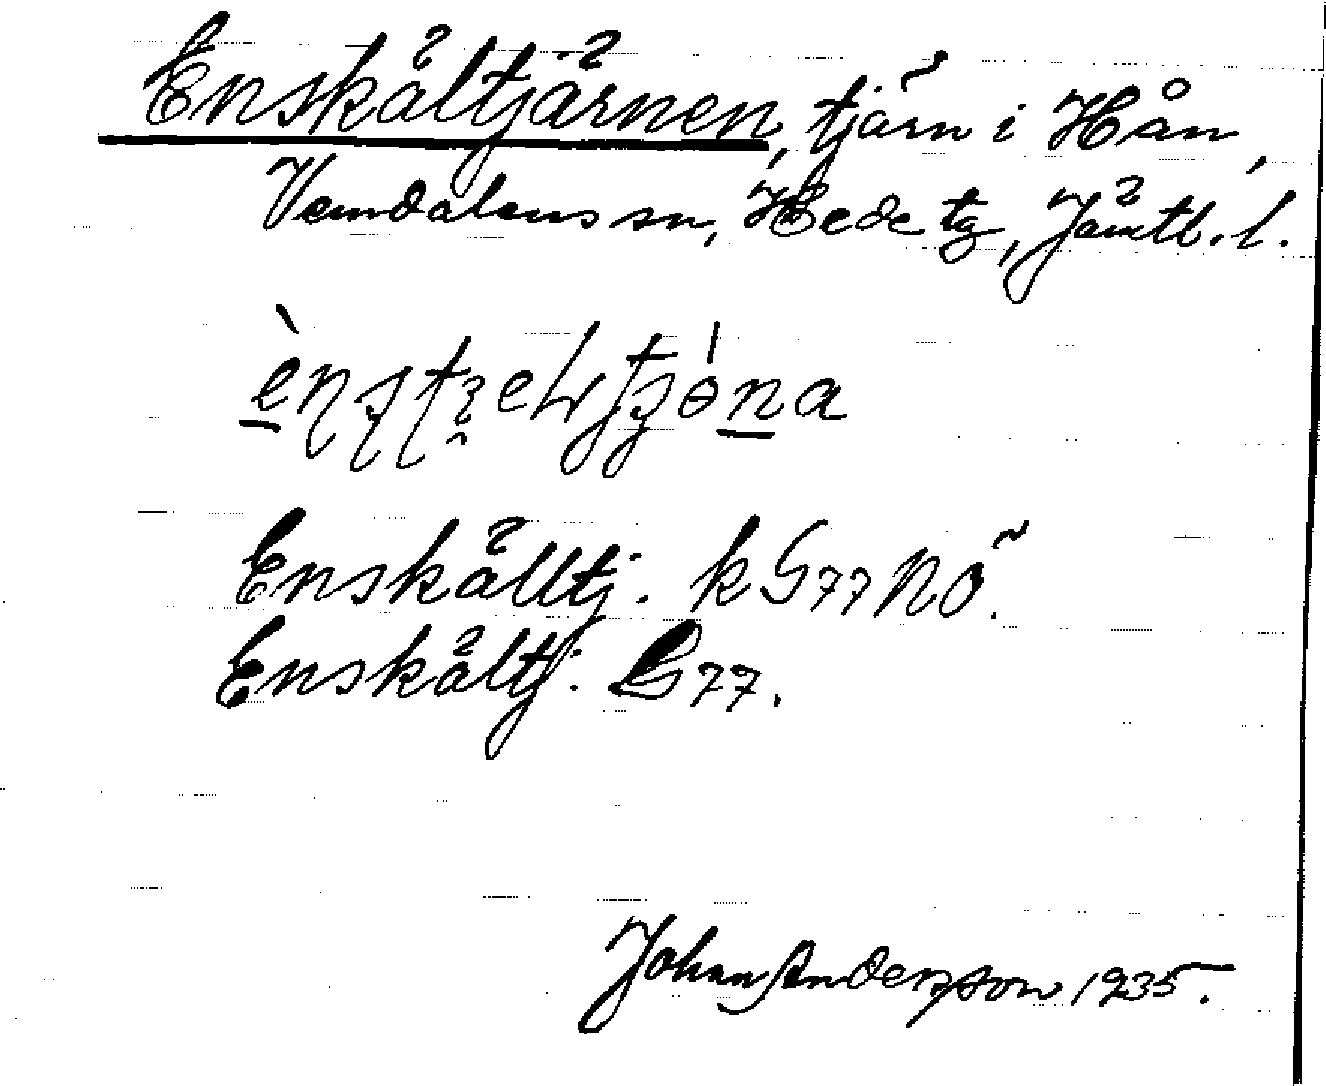 Enskältjärnen, tjärn i Hån,
Vemdalens sn, Hede tg, Jämtl. l.
Enskälltj. k G77 NÖ.
Enskältj. G77.
Johan Anderzson 1935.